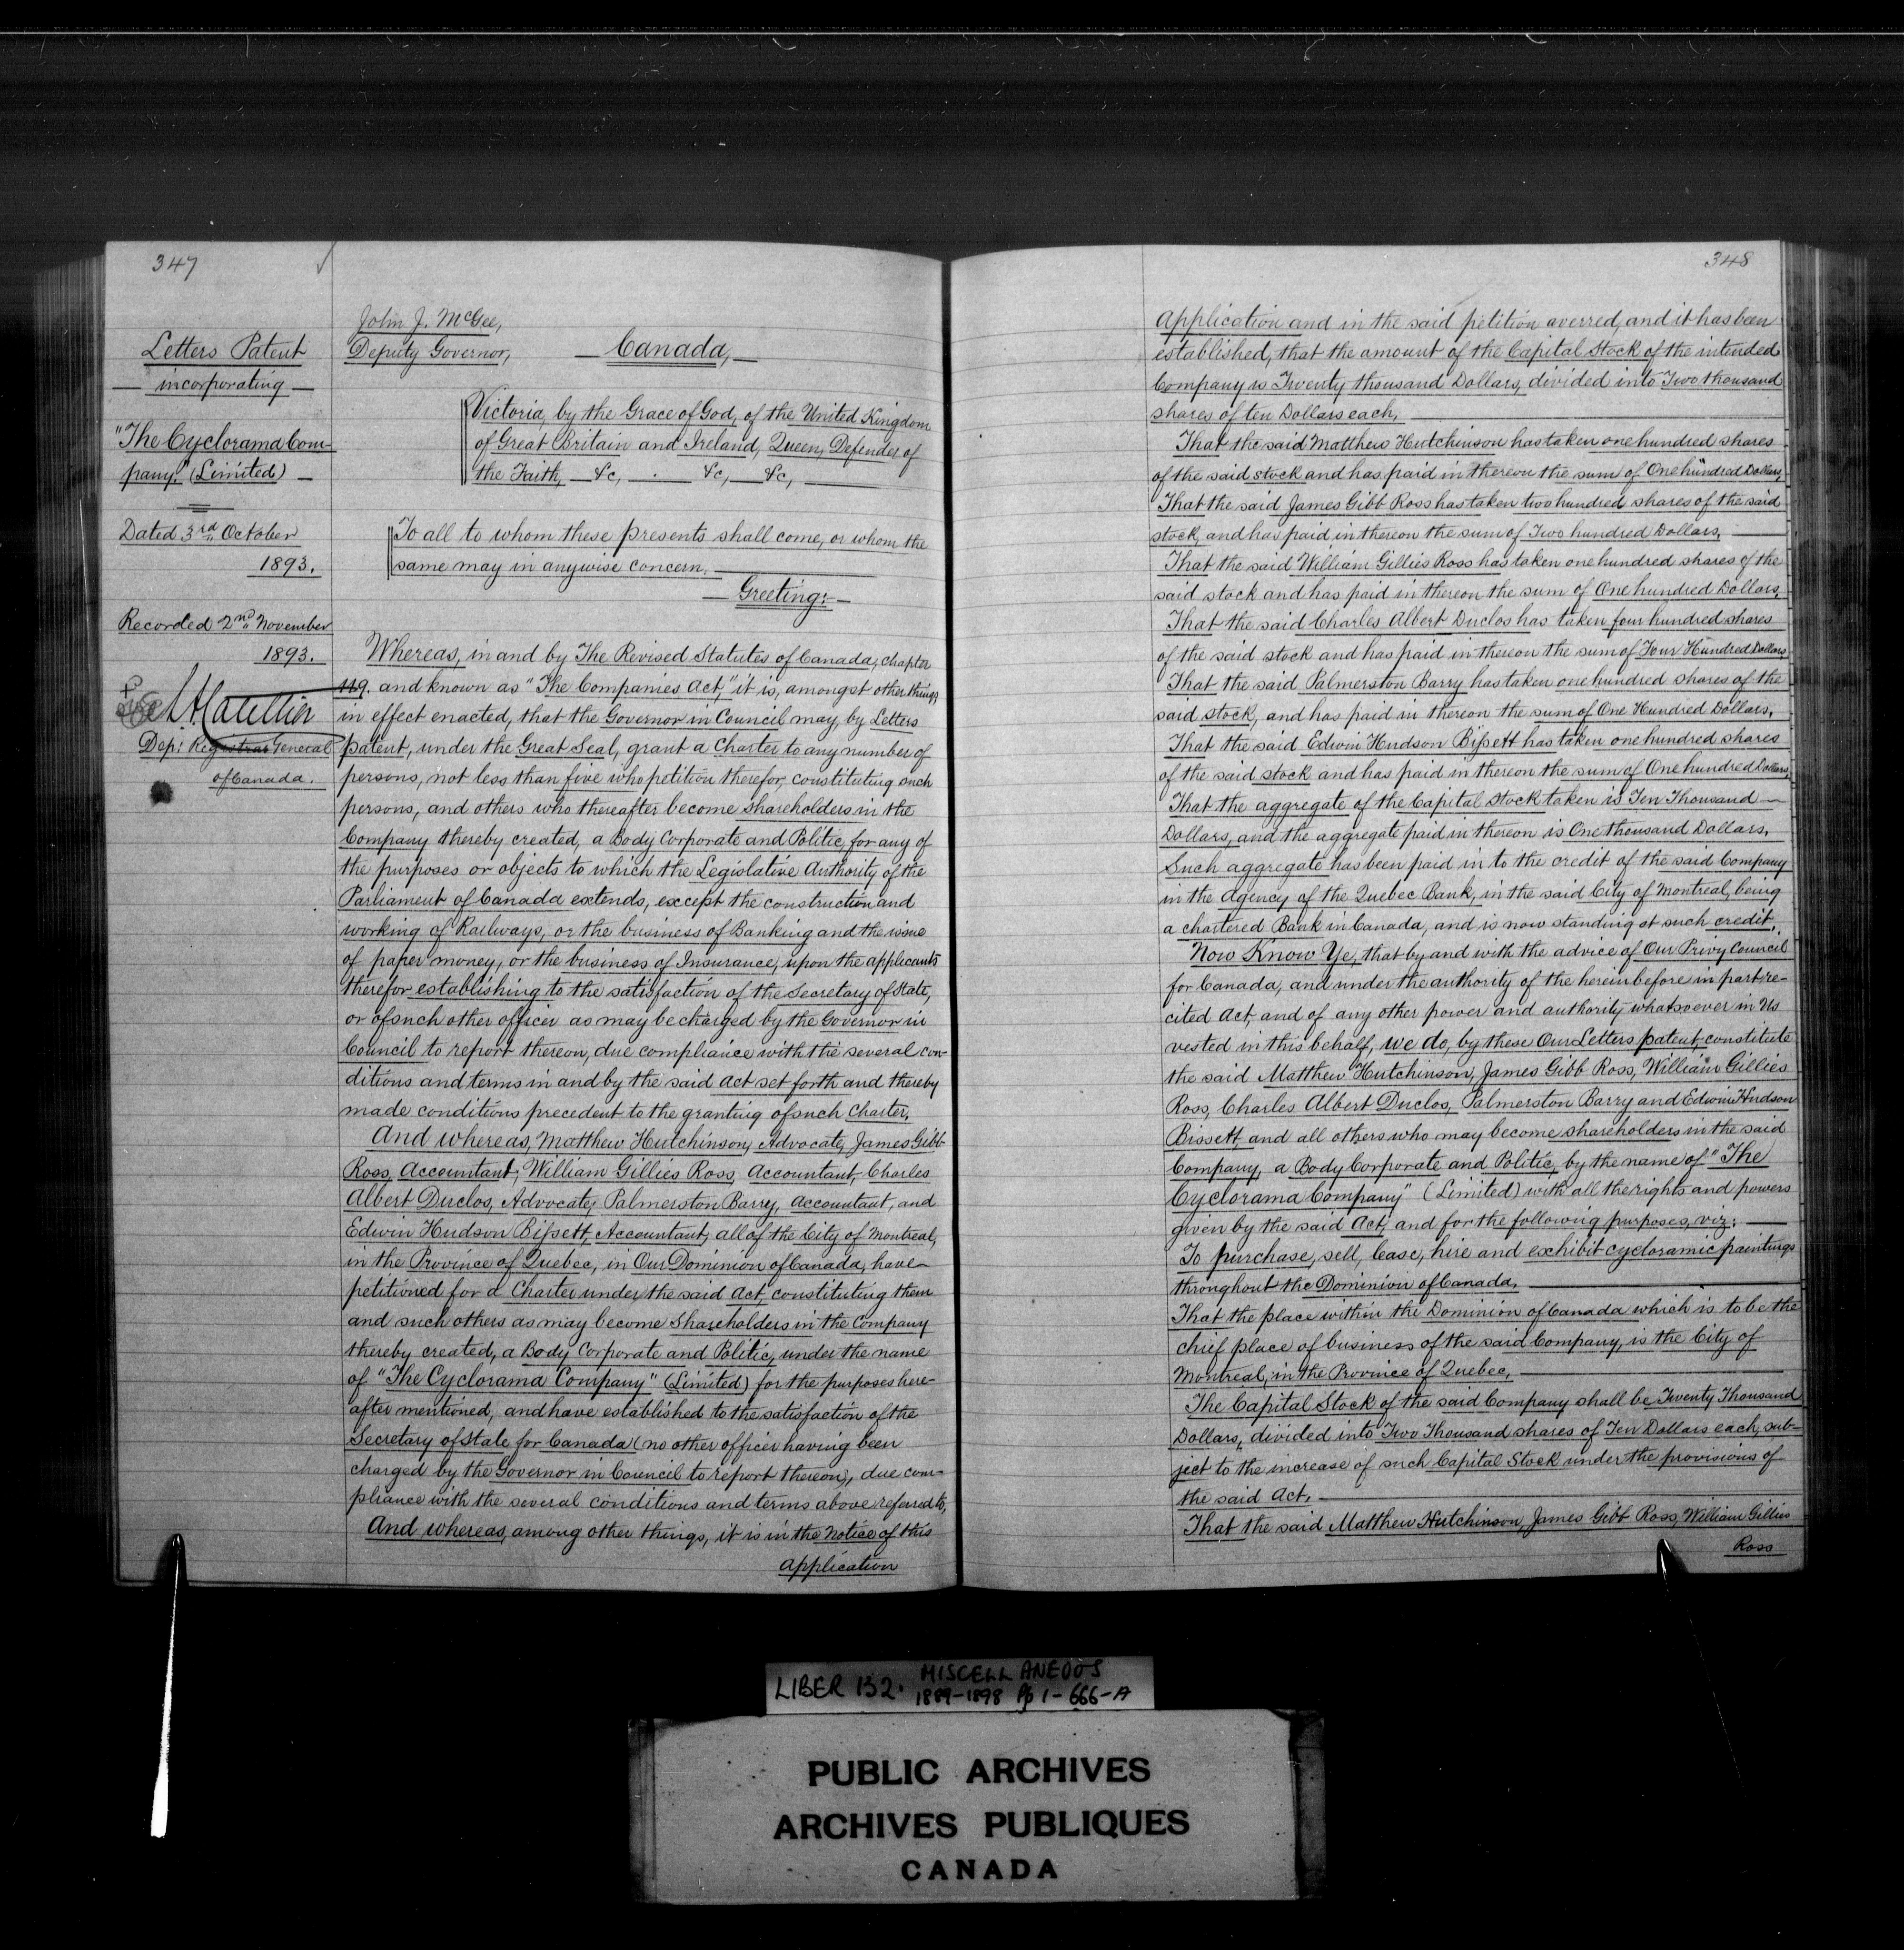 347
Letters Patent
incorporating
"The Cyclorama Com-
pany." (Limited)
Dated 3rd October
1893.
Recorded 2nd November
1893.
Dep: Registrar General
of Canada.
John J. McGee,
Deputy Governor,
Canada,
Victoria, by the Grace of God, of the United Kingdom
of Great Britain and Ireland, Queen, Defender of
the Faith, &c, &c, &c,
To all to whom these presents shall come, or whom the
same may in anywise concern.
Greeting:
Whereas, in and by The Revised Statutes of Canada, chapter
119. and known as "The Companies Act," it is, amongst other things
in effect enacted, that the Governor in Council may, by Letters
patent, under the Great Seal, grant a Charter to any number of
persons, not less than five who petition therefor, constituting such
persons, and others who thereafter become shareholders in the
Company thereby created, a Body Corporate and Politic, for any of
the purposes or objects to which the Legislative Authority of the
Parliament of Canada extends, except the construction and
working of Railways, or the business of Banking and the issue
of paper money, or the business of Insurance, upon the applicants
therefor establishing to the satisfaction of the Secretary of State,
or of such other officer as may be charged by the Governor in
Council to report thereon, due compliance with the several con-
ditions and terms in and by the said Act set forth and thereby
made conditions precedent to the granting of such Charter.
And whereas, Matthew Hutchinson, Advocate, James Gibb
Ross, Accountant, William Gillies Ross, Accountant, Charles
Albert Duclos, Advocate, Palmerston Barry, Accountant, and
Edwin Hudson Bissett, Accountant, all of the City of Montreal,
in the Province of Quebec, in Our Dominion of Canada, have
petitioned for a Charter under the said Act, constituting them
and such others as may become Shareholders in the Company
thereby created, a Body Corporate and Politic, under the name
of "The Cyclorama Company" (Limited) for the purposes here-
after mentioned, and have established to the satisfaction of the
Secretary of State for Canada (no other officer having been
charged by the Governor in Council to report thereon), due com-
pliance with the several conditions and terms above referred to,
And whereas, among other things, it is in the Notice of this
application
348
Application and in the said petition averred, and it has been
established, that the amount of the Capital Stock of the intended
Company is Twenty thousand Dollars, divided into Two thousand
shares of ten Dollars each,
That the said Matthew Hutchinson has taken one hundred shares
of the said stock and has paid in thereon the sum of One hundred Dollars,
That the said James Gibb Ross has taken two hundred shares of the said
stock, and has paid in thereon the sum of Two hundred Dollars,
That the said William Gillies Ross has taken one hundred shares of the
said stock and has paid in thereon the sum of One hundred Dollars,
That the said Charles Albert Duclos has taken four hundred shares
of the said stock and has paid in thereon the sum of Four Hundred Dollars
That the said Palmerston Barry has taken one hundred shares of the
said stock, and has paid in thereon the sum of One Hundred Dollars,
That the said Edwin Hudson Bissett has taken one hundred shares
of the said stock and has paid in thereon the sum of One hundred Dollars,
That the aggregate of the Capital Stock taken is Ten Thousand
Dollars, and the aggregate paid in thereon is One thousand Dollars.
Such aggregate has been paid in to the credit of the said Company
in the Agency of the Quebec Bank, in the said City of Montreal, being
a chartered Bank in Canada, and is now standing at such credit.
Now Know Ye, that by and with the advice of Our Privy Council
for Canada, and under the authority of the hereinbefore in part re-
cited Act, and of any other power and authority whatsoever in Us
vested in this behalf, we do, by these Our Letters patent, constitute
the said Matthew Hutchinson, James Gibb Ross, William Gillies
Ross, Charles Albert Duclos, Palmerston Barry and Edwin Hudson
Bissett, and all others who may become shareholders in the said
Company, a Body Corporate and Politic, by the name of "The
Cyclorama Company" (Limited) with all the rights and powers
given by the said Act, and for the following purposes, viz:
To purchase, sell, lease, hire and exhibit cycloramic paintings
throughout the Dominion of Canada,
That the place within the Dominion of Canada which is to be the
chief place of business of the said Company, is the City of
Montreal, in the Province of Quebec,
The Capital Stock of the said Company shall be Twenty Thousand
Dollars, divided into Two Thousand shares of Ten Dollars each, sub-
ject to the increase of such Capital Stock under the provisions of
the said Act,
That the said Matthew Hutchinson, James Gibb Ross, William Gillies
Ross
LIBER 132. MISCELLANEOUS
1889-1898 Pp 1-666-A
PUBLIC ARCHIVES
ARCHIVES PUBLIQUES
CANADA